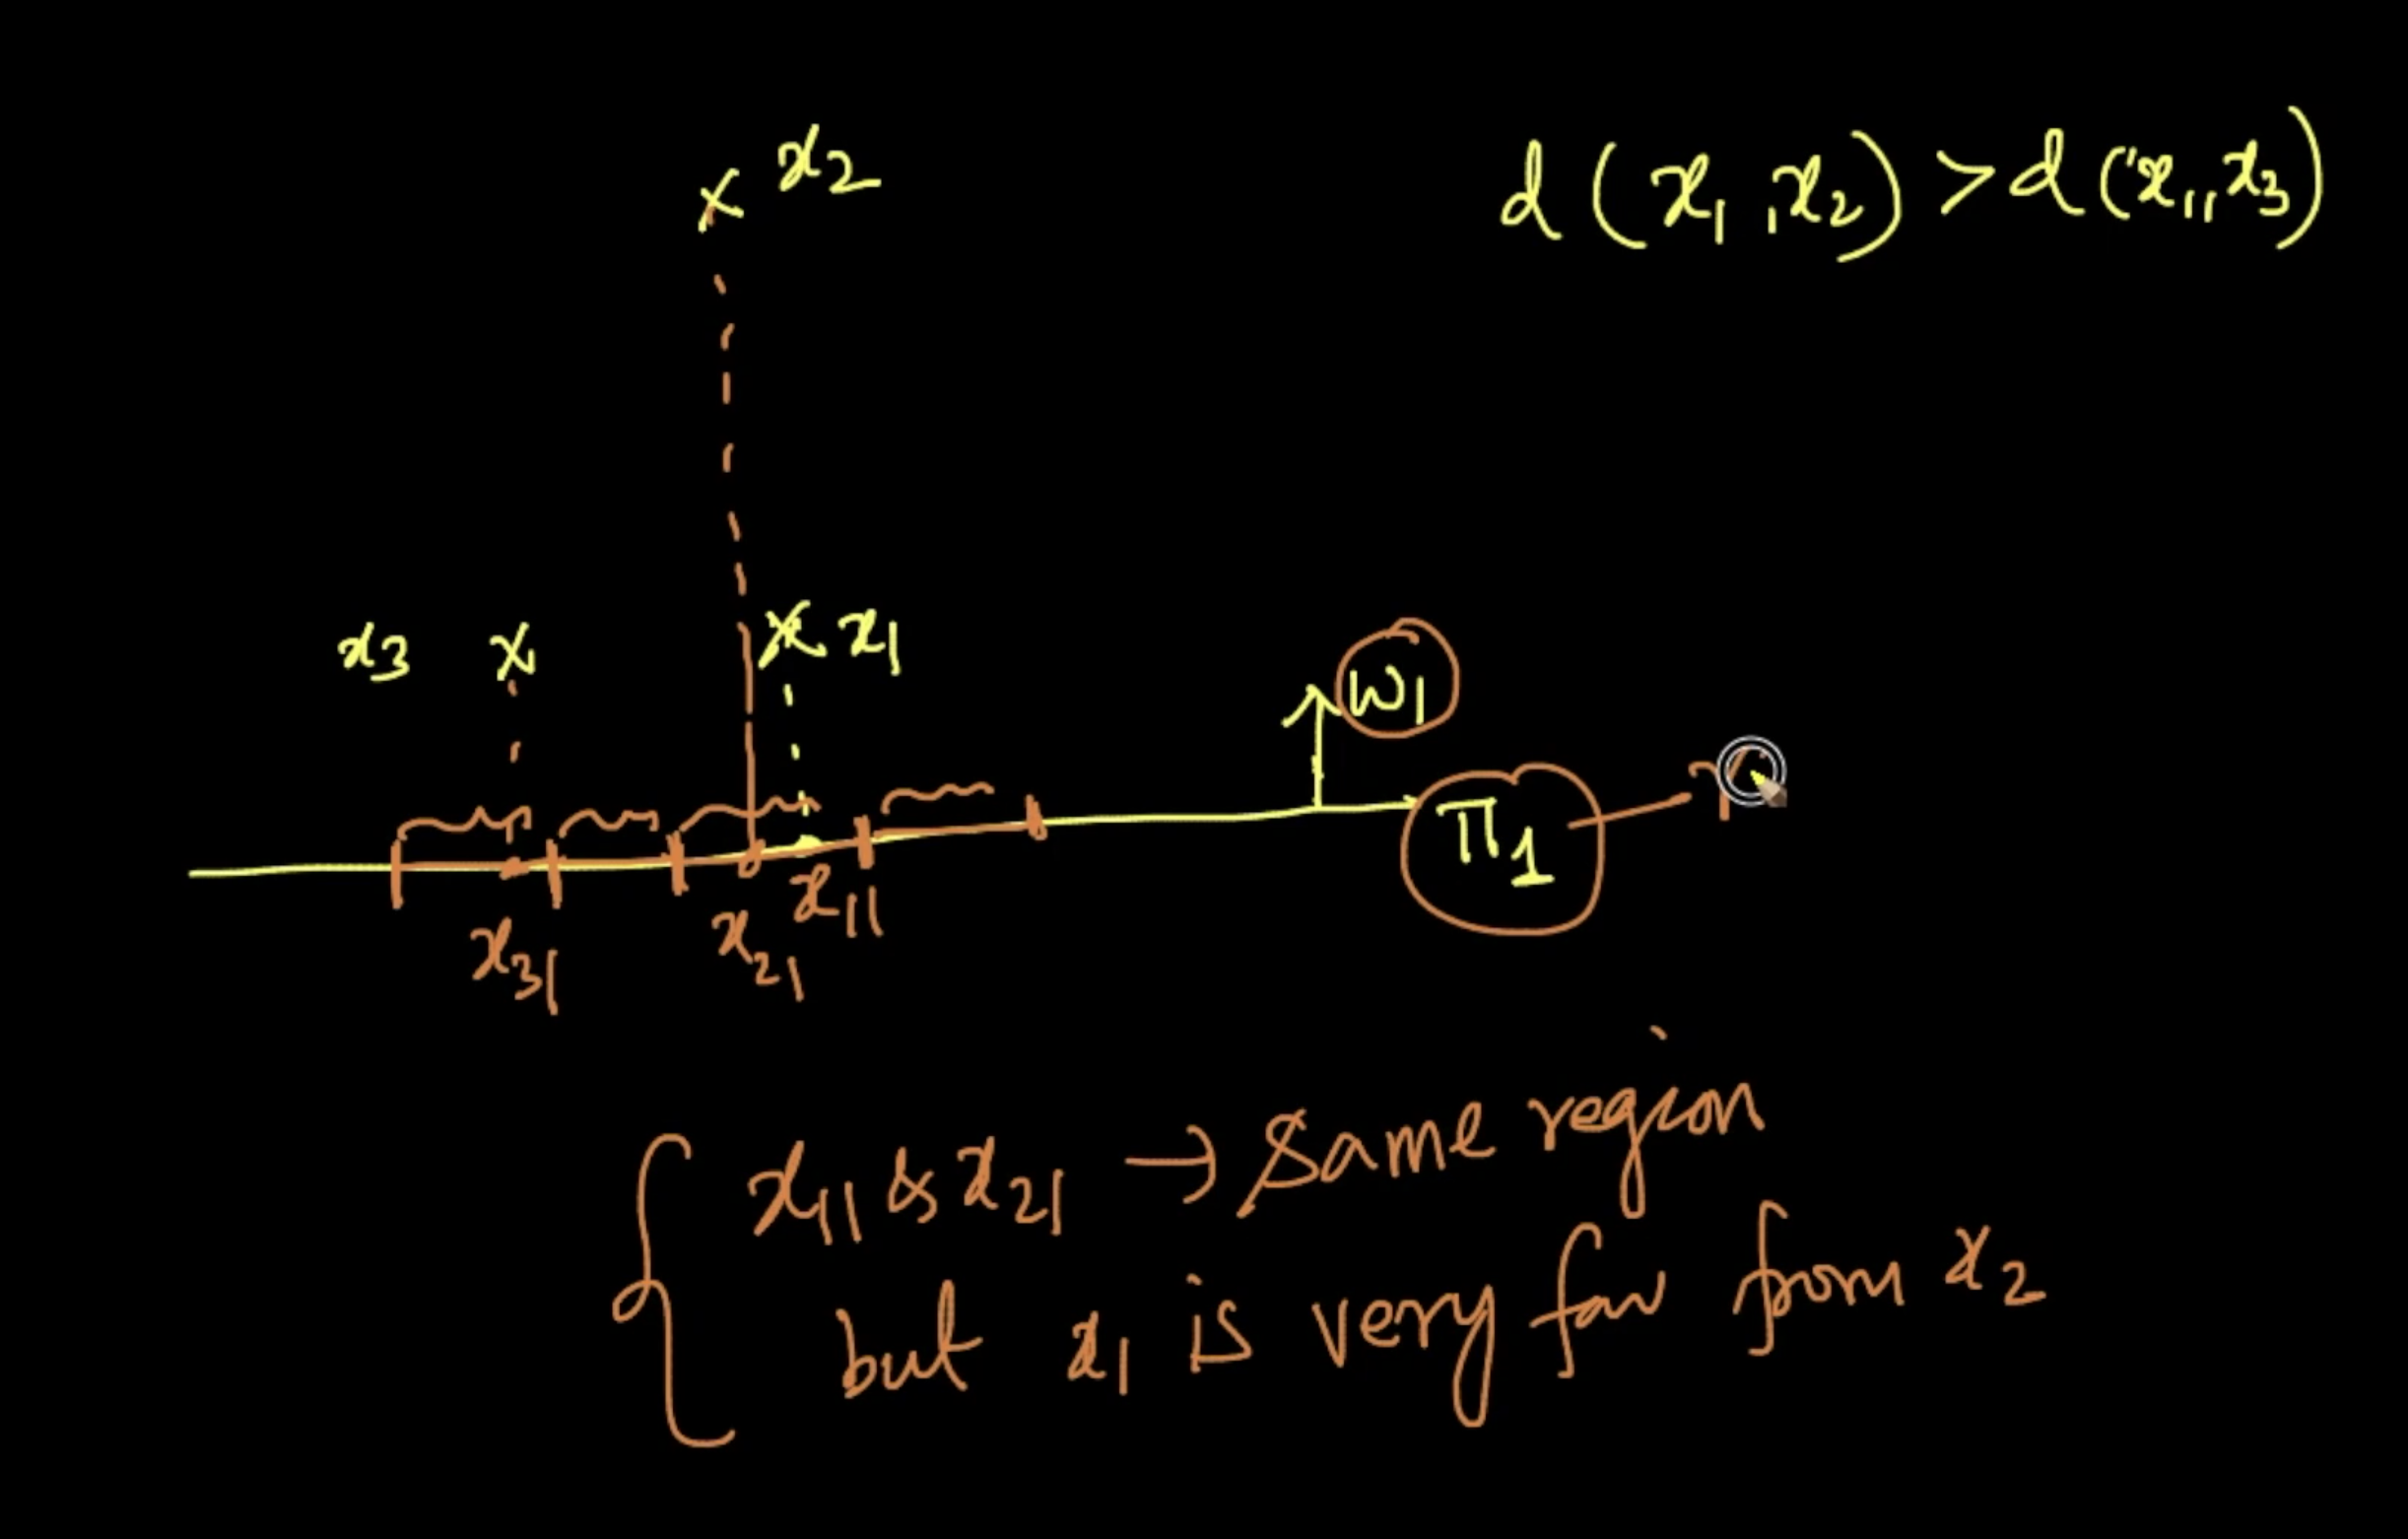 x2
d(x1,x2) > d(x1,x3)
x3 x x1
w1
π1
x31 x21 x11
x11 & x21 → same region
but x1 is very far from x2